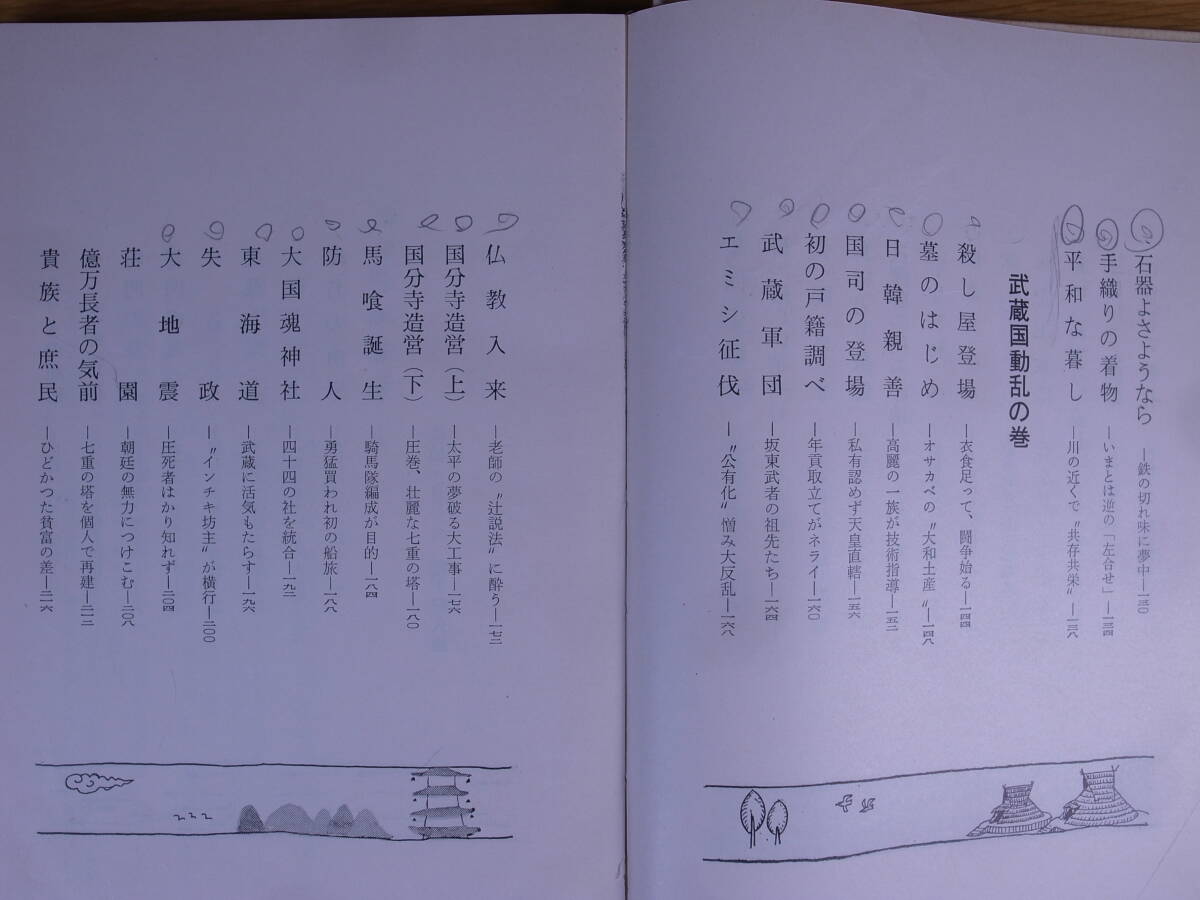 石器よさようなら ―鉄の切れ味に夢中―一三〇
手織りの着物 ―いまとは逆の「左合せ」―一三四
平和な暮し ―川の近くで〝共存共栄〟―一三八
武蔵国動乱の巻
殺し屋登場 ―衣食足って、闘争始る―一四四
墓のはじめ ―オサカベの〝大和土産〟―一四八
日韓親善 ―高麗の一族が技術指導―一五二
国司の登場 ―私有認めず天皇直轄―一五六
初の戸籍調べ ―年貢取立てがネライ―一六〇
武蔵軍団 ―坂東武者の祖先たち―一六四
エミシ征伐 ―〝公有化〟憎み大反乱―一六八
仏教入来 ―老師の〝辻説法〟に酔う―一七二
国分寺造営(上) ―太平の夢破る大工事―一七六
国分寺造営(下) ―圧巻、壮麗な七重の塔―一八〇
馬喰誕生 ―騎馬隊編成が目的―一八四
防人 ―勇猛買われ初の船旅―一八八
大国魂神社 ―四十四の社を統合―一九二
東海道 ―武蔵に活気もたらす―一九六
失政 ―〝インチキ坊主〟が横行―二〇〇
大地震 ―圧死者はかり知れず―二〇四
荘園 ―朝廷の無力につけこむ―二〇八
億万長者の気前 ―七重の塔を個人で再建―二一二
貴族と庶民 ―ひどかつた貧富の差―二一六